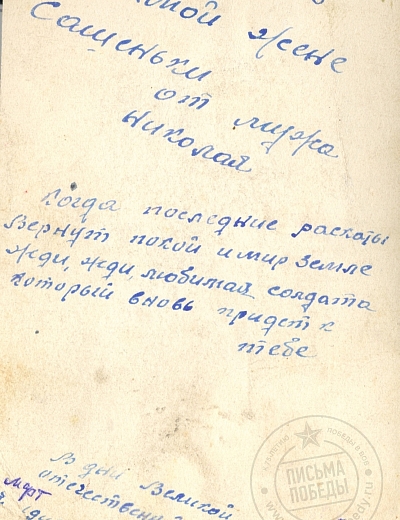 мой жене
Сашеньки
от мужа
Николая
Когда последние раскаты
Вернут покой и мир Земле
Жди, жди любимая солдата
который вновь придет к
тебе
В дни Великой
отечественной
март
ПИСЬМА
ПОБЕДЫ